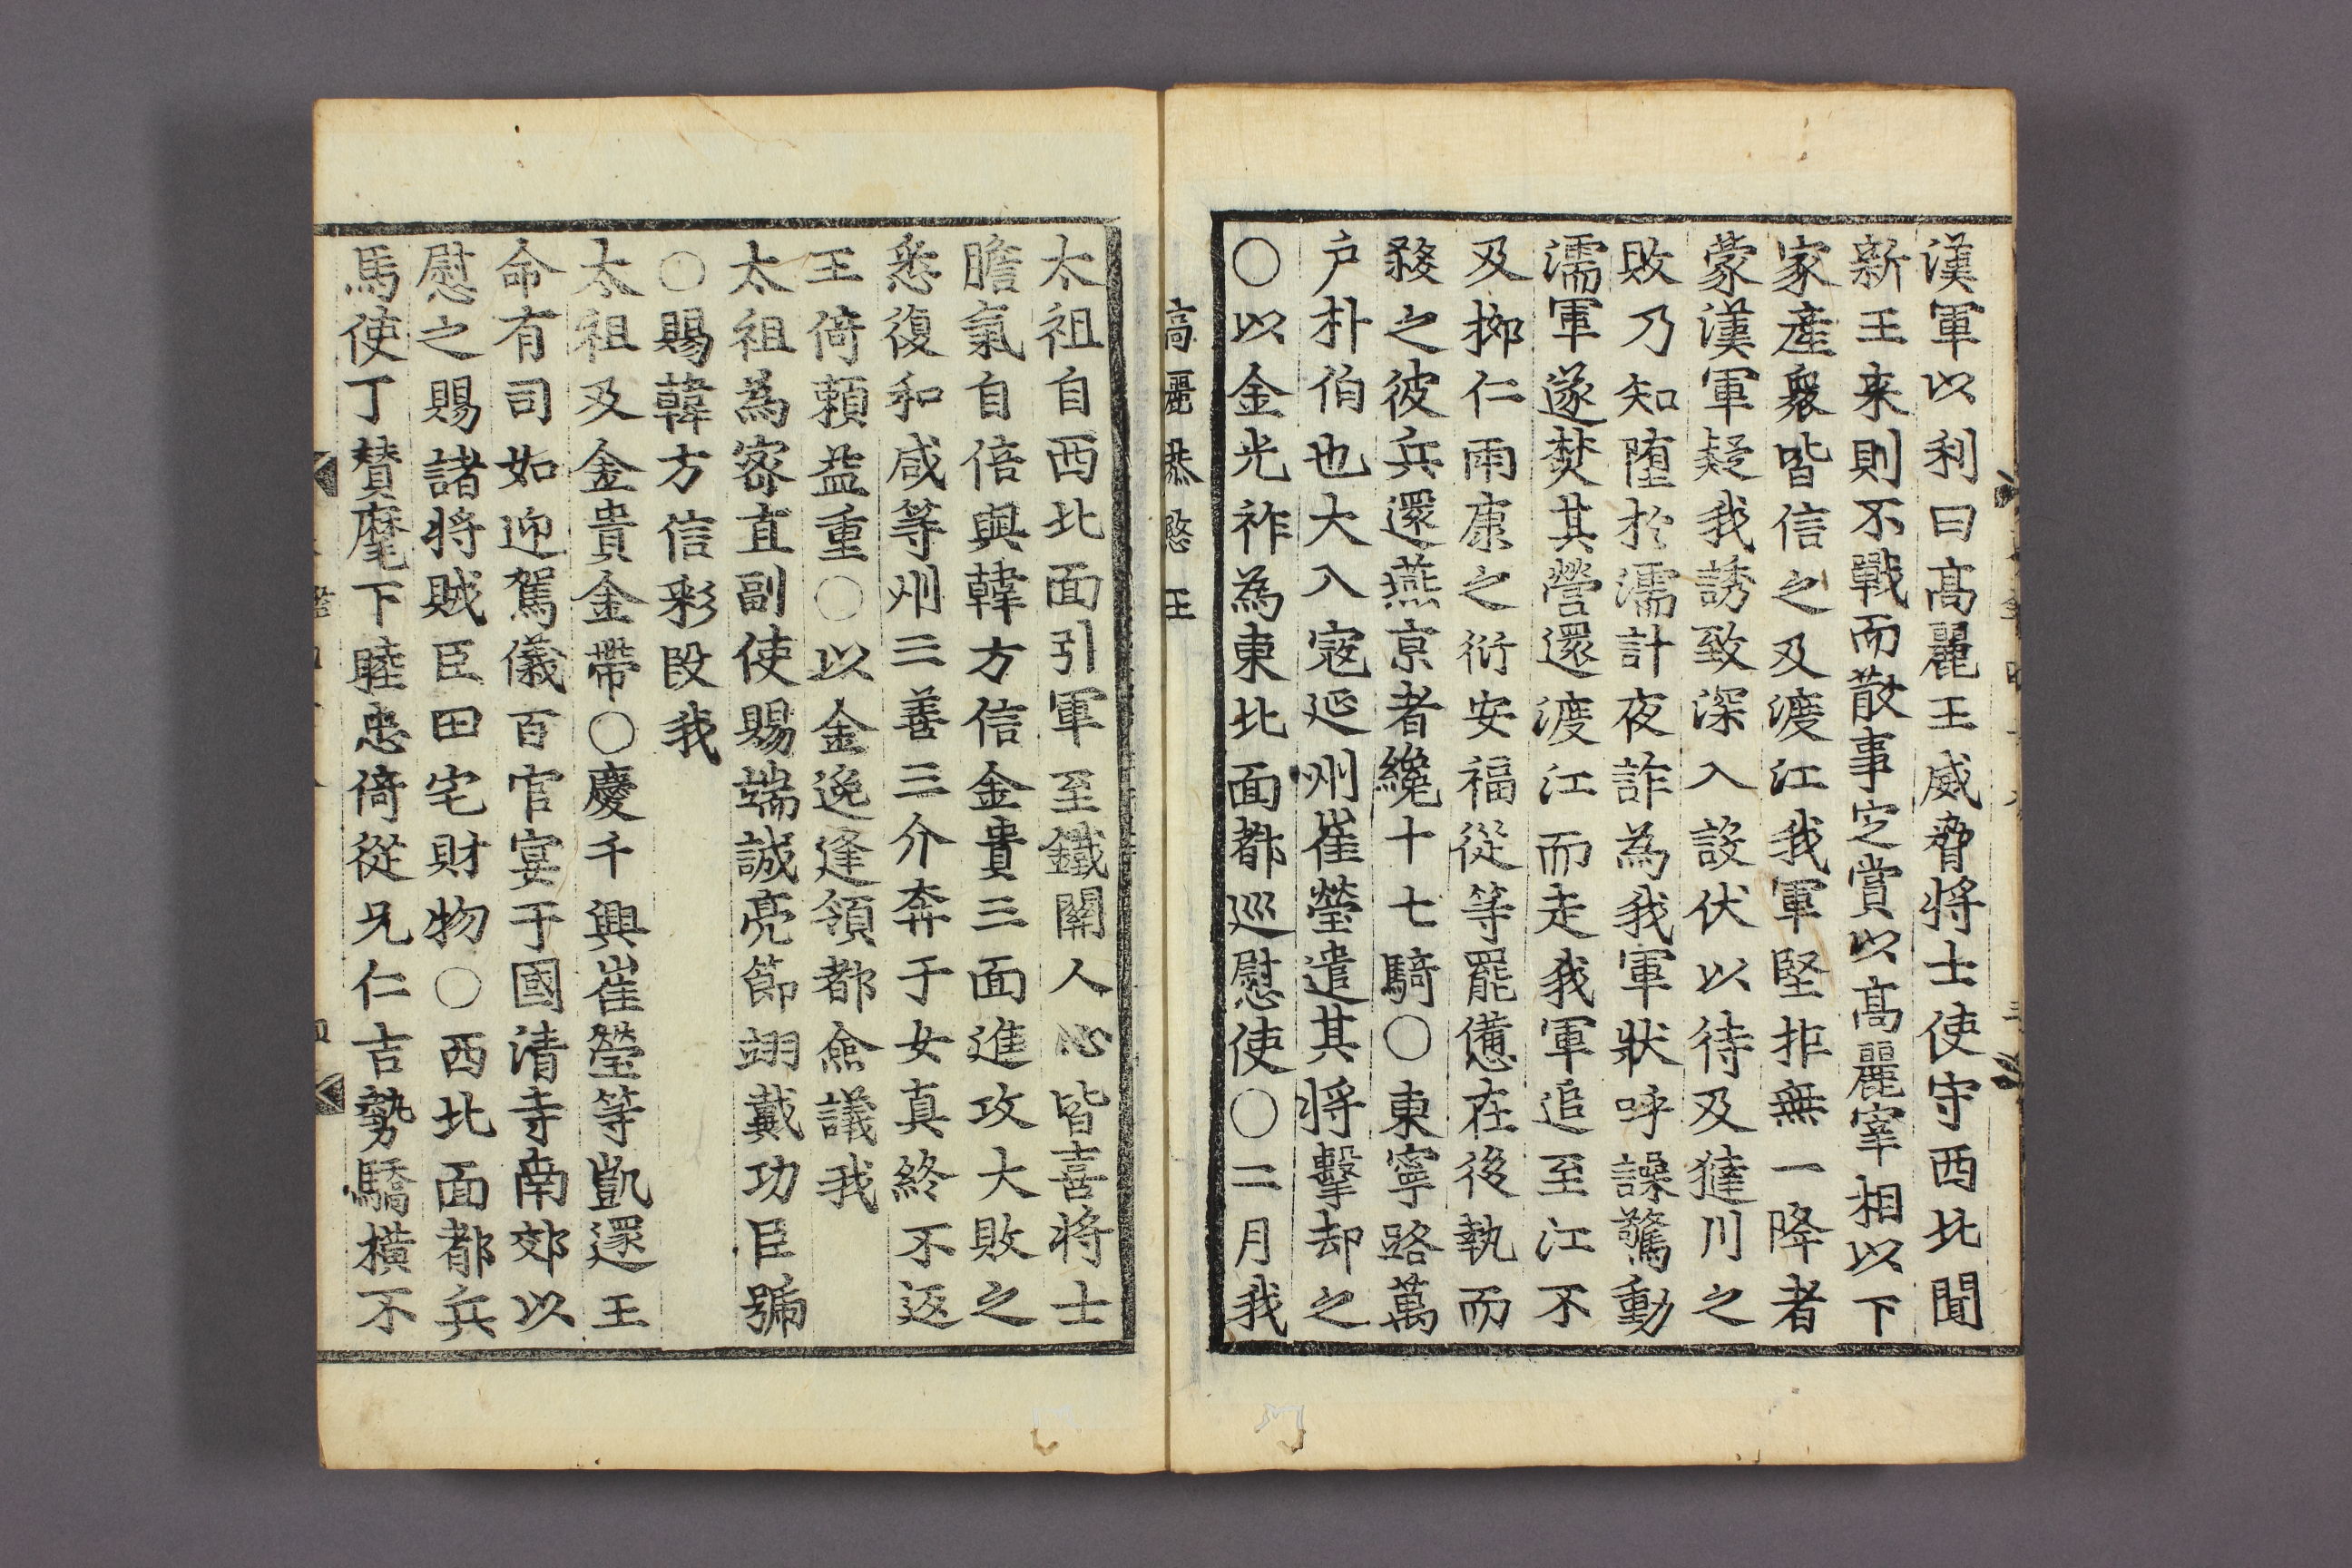 漢軍以利曰髙麗王威脅將士使守西北聞
新王来則不戰而散事㝎賞以髙麗宰相以下
家産衆皆信之及渡江我軍堅拒無一降者
蒙漢軍疑我誘致深入設伏以待及㺚川之
敗乃知堕於濡計夜詐為我軍狀呼譟驚動
濡軍遂焚其營還渡江而走我軍追至江不
及擲仁雨康之衍安福從等罷僡在後執而
殺之彼兵還燕京者纔十七騎○東寧路萬
户朴伯也大入寇延州崔瑩遣其将擊却之
○以金光祚為東北面都巡慰使○二月我
高麗恭愍王
太祖自西北面引軍至鐵關人心皆喜將士
膽氣自倍與韓方信金貴三面進攻大敗之
悉復和咸等州三善三介奔于女真終不返
王倚賴益重○以金逸逢領都僉議我
太祖為密直副使賜端誠亮節翊戴功臣號
○賜韓方信彩段我
太祖及金貴金帶○慶千興崔瑩等凱還王
命有司如迎駕儀百官宴于國清寺南郊以
慰之賜諸將賊臣田宅財物○西北面都兵
馬使丁賛麾下睦忠倚從兄仁吉勢驕横不